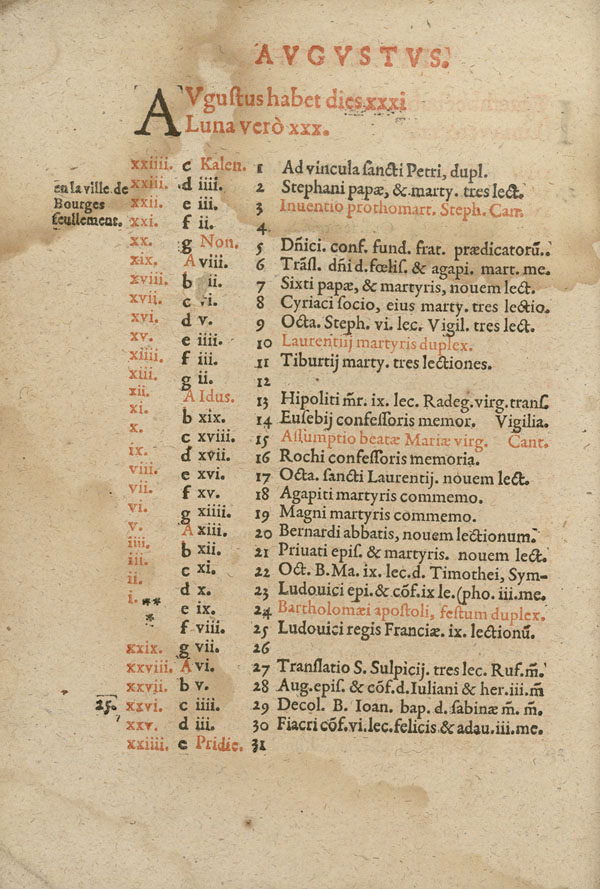 AVGVSTVS.
AVgustus habet dies xxxi
Luna verò xxx.
xxiiii. c Kalen. 1 Ad vincula sancti Petri, dupl.
en la ville de Bourges seullement.
xxiii. d iiii. 2 Stephani papæ, & marty. tres lect.
xxii. e iii. 3 Inuentio prothomart. Steph. Can.
xxi. f ii. 4
xx. g Non. 5 Dñici. conf. fund. frat. prædicatorũ.
xix. A viii. 6 Trãsl. dñi d. fœlis. & agapi. mart. me.
xviii. b ii. 7 Sixti papæ, & martyris, nouem lect.
xvii. c vi. 8 Cyriaci socio, eius marty. tres lectio.
xvi. d v. 9 Octa. Steph. vi. lec. Vigil. tres lect.
xv. e iiii. 10 Laurentij martyris duplex.
xiiii. f iii. 11 Tiburtij marty. tres lectiones.
xiii. g ii. 12
xii. A Idus. 13 Hipoliti mr̃. ix. lec. Radeg. virg. trans.
xi. b xix. 14 Eusebij confessoris memor. Vigilia.
x. c xviii. 15 Assumptio beatæ Mariæ virg. Cant.
ix. d xvii. 16 Rochi confessoris memoria.
viii. e xvi. 17 Octa. sancti Laurentij. nouem lect.
vii. f xv. 18 Agapiti martyris commemo.
vi. g xiiii. 19 Magni martyris commemo.
v. A xiii. 20 Bernardi abbatis, nouem lectionum.
iiii. b xii. 21 Priuati epis. & martyris. nouem lect.
iii. c xi. 22 Oct. B. Ma. ix. lec. d. Timothei, Sym-
ii. d x. 23 Ludouici epi. & cõf. ix le. (pho. iii. me.
i. ** e ix. 24 Bartholomæi apostoli, festum duplex.
* f viii. 25 Ludouici regis Franciæ. ix. lectionũ.
xxix. g vii. 26
xxviii. A vi. 27 Translatio S. Sulpicij. tres lec. Ruf. m̃.
xxvii. b v. 28 Aug. epis. & cõf. d. Iuliani & her. iii. m̃
25. xxvi. c iiii. 29 Decol. B. Ioan. bap. d. sabinæ m̃. m̃.
xxv. d iii. 30 Fiacri cõf. vi. lec. felicis & adau. iii. me.
xxiiii. e Pridie. 31